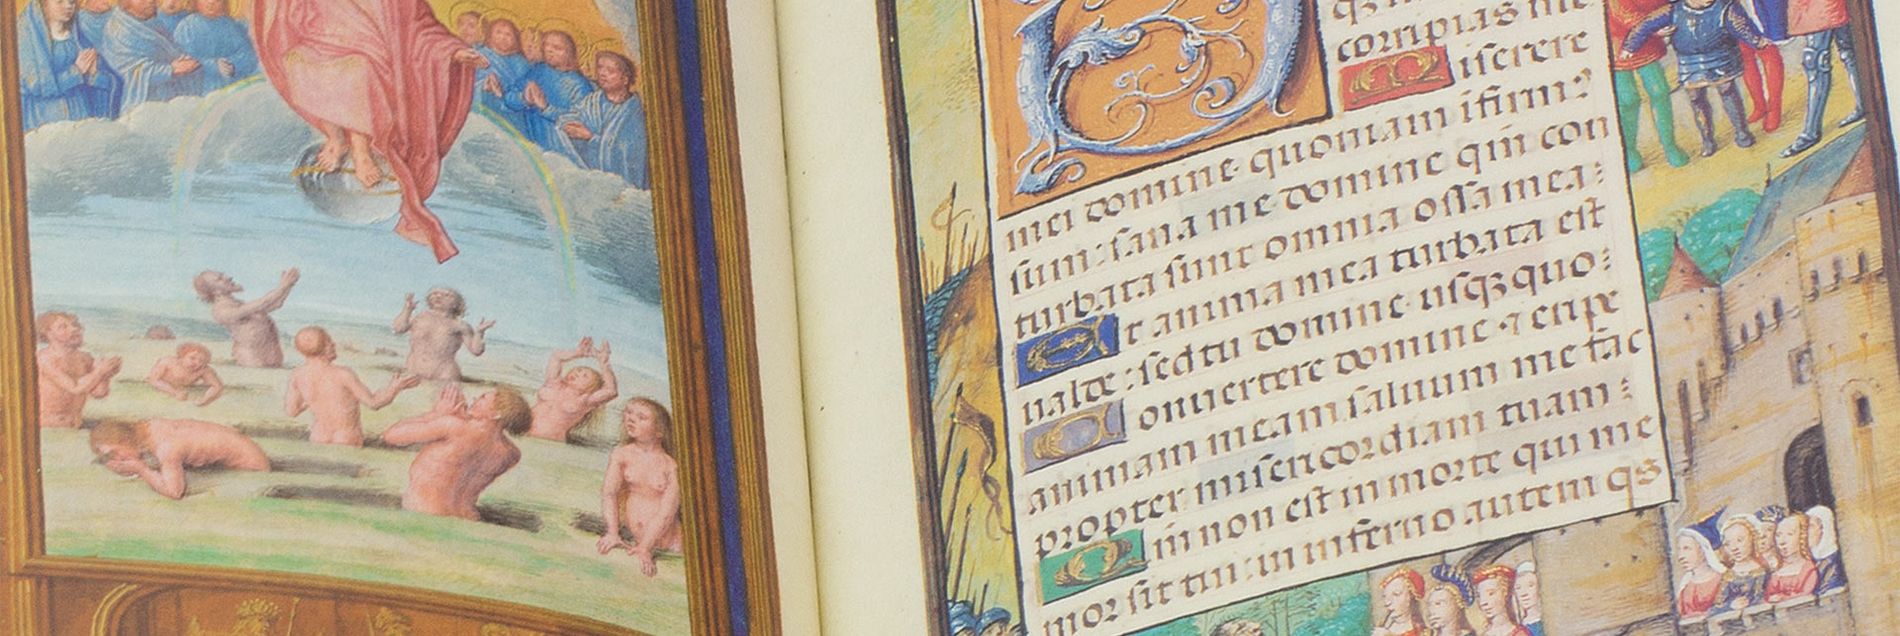 corripias me
Miserere
mei domine quoniam ifirm9
sum: sana me domine qm con
turbata sunt omnia ossa mea:
Et anima mea turbata est
ualde: sed tu domine usqȝ quo:
Conuertere domine ⁊ eripe
animam meam saluum me fac
propter misericordiam tuam:
Qm non est in morte qui me
mor sit tui: in inferno autem qs